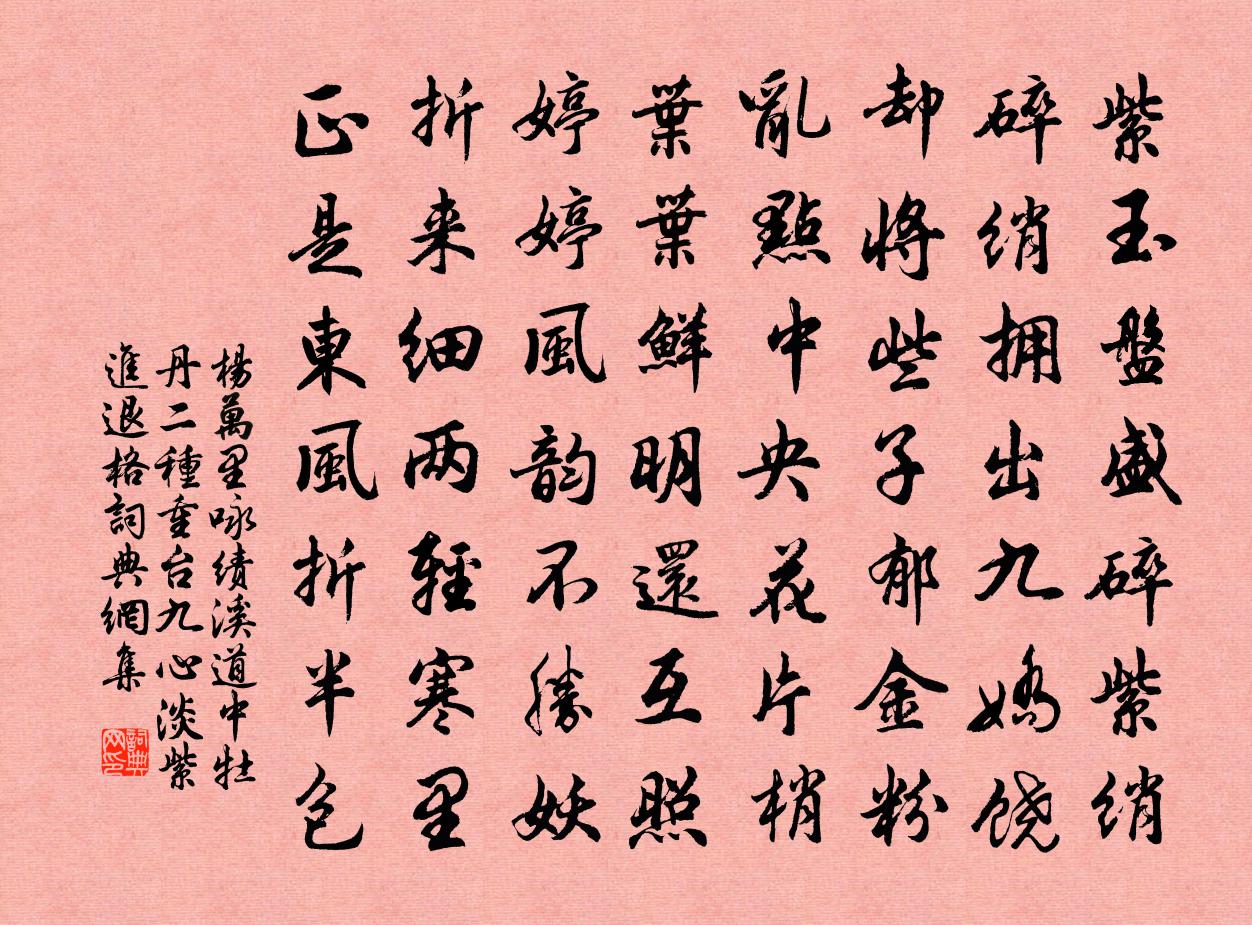 紫玉盤盛碎紫綃
碎綃拥出九嬌饶
却將些子郁金粉
亂點中央花片梢
葉葉鮮明還互照
婷婷風韵不勝妖
折来细两輕寒里
正是東風折半包
楊萬里咏績溪道中牡
丹二種重台九心淡紫
進退格詞典網集
詞典
网印